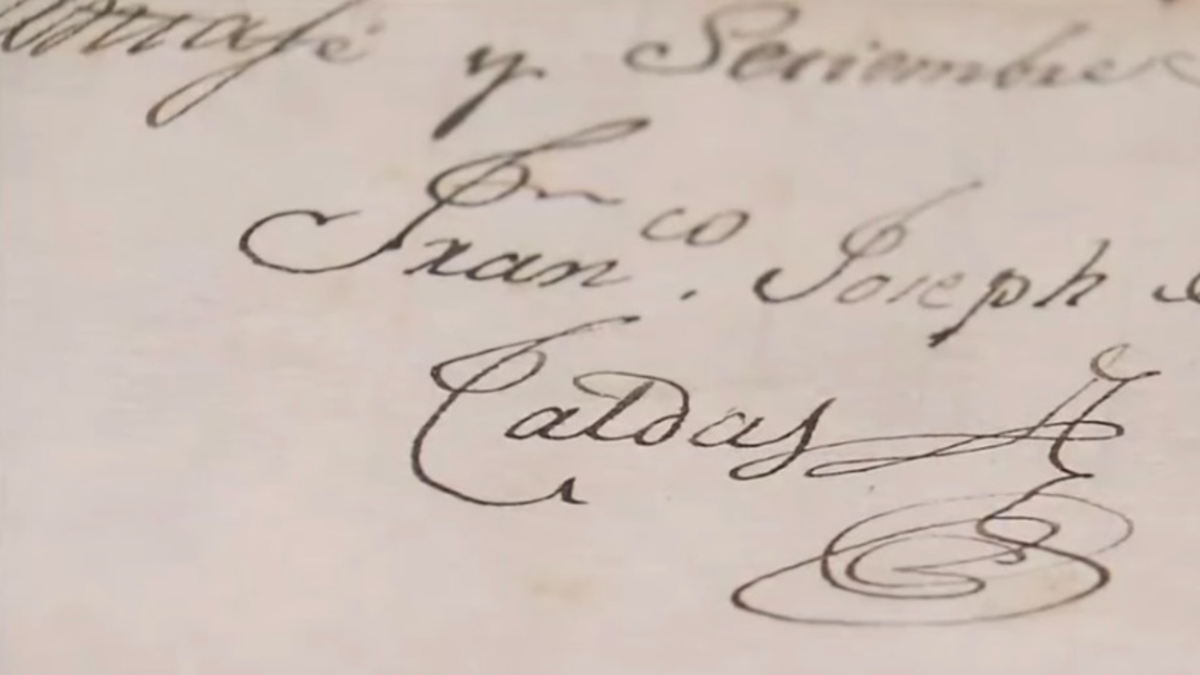 y Seriembre
Fran.co Joseph
Caldas